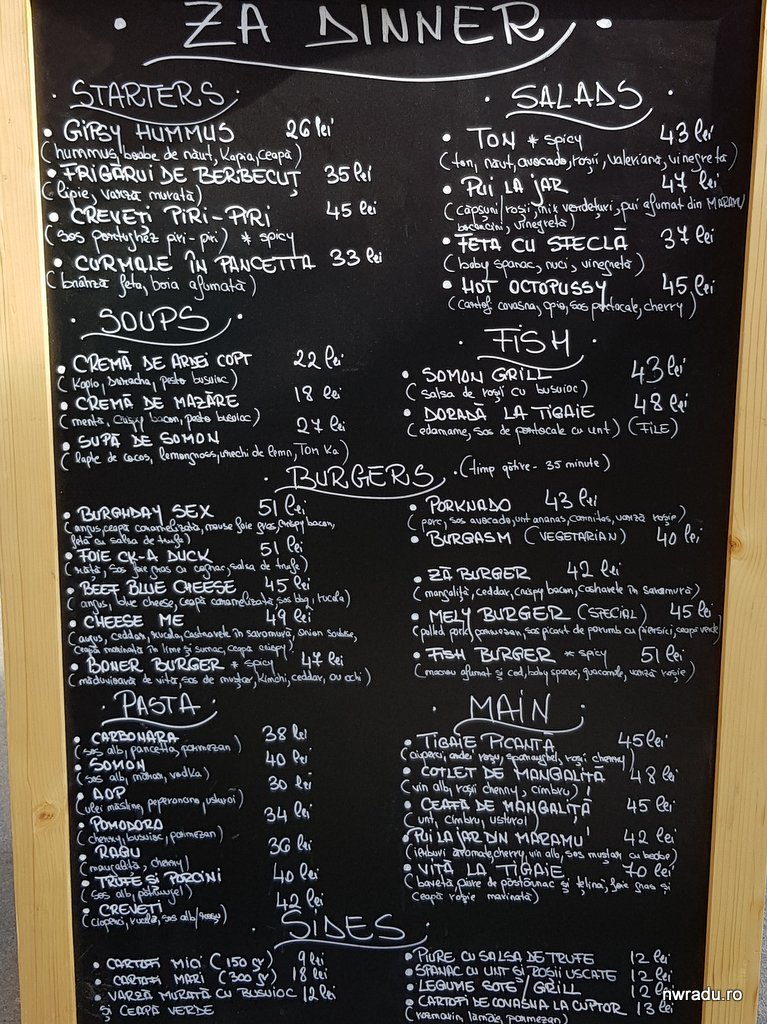 ZA DINNER
STARTERS
GIPSY HUMMUS 26 lei
(hummus, boabe de năut, Kapia, ceapă)
FRIGĂRUI DE BERBECUȚ 35 lei
(lipie, varză murată)
CREVEȚI PIRI-PIRI 45 lei
(sos portughez piri-piri) * spicy
CURMALE ÎN PANCETTA 33 lei
(brânză feta, boia afumată)
SOUPS
CREMĂ DE ARDEI COPT 22 lei
pesto busuioc)
CREMĂ DE MAZĂRE 18 lei
(mentă, crispy bacon, pesto busuioc)
SUPĂ DE SOMON 27 lei
(lapte de cocos, lemongrass, urechi de lemn, Tom Ka)
SALADS
TON * spicy 43 lei
(ton, năut, avocado, roșii, valeriana, vinegretă)
PUI LA JAR 47 lei
(căpșuni/roșii, mix verdețuri, pui afumat din MARAMU'
bocconcini, vinegretă)
FETA CU SFECLĂ 37 lei
(baby spanac, nuci, vinegretă)
HOT OCTOPUSSY 45 lei
(cartof covasna, apio, sos portocale, cherry)
FISH
SOMON GRILL 43 lei
(salsa de roșii cu busuioc)
DORADĂ LA TIGAIE 48 lei
(edamame, sos de portocale cu unt) (FILE)
BURGERS (timp gătire - 35 minute)
BURGHDAY SEX 51 lei
(angus, ceapă caramelizată, mouse foie gras, crispy bacon,
fetă cu salsa de trufe)
FOIE CK-A DUCK 51 lei
(rață, sos foie gras cu cognac, salsa de trufe)
BEEF BLUE CHEESE 45 lei
(angus, blue cheese, ceapă caramelizată, sos bbq, rucola)
CHEESE ME 49 lei
(angus, ceddar, rucola, castravete în saramură, onion
ceapă marinată în lime și sumac, ceapă crispy)
BONER BURGER * spicy 47 lei
(măduvioară de vită, sos de muștar, Kimchi, ceddar, ou ochi)
PORKNADO 43 lei
(porc, sos avocado, unt ananas, carnitas, varză roșie)
BURGASM (VEGETARIAN) 40 lei
ZĂ BURGER 42 lei
(mangaliță, ceddar, crispy bacon, castravete în saramură)
MELY BURGER (SPECIAL) 45 lei
(pulled pork, parmezan, sos picant de porumb cu piersici, ceapă verde)
FISH BURGER * spicy 51 lei
(macrou afumat și cod, baby spanac, guacamole, varză roșie)
PASTA
CARBONARA 38 lei
(sos alb, pancetta, parmezan)
SOMON 40 lei
(sos alb, vodka)
AOP 30 lei
(ulei măsline, peperoncino, usturoi)
POMODORO 34 lei
(cherry, busuioc, parmezan)
RAGU 36 lei
(mangaliță, cherry)
TRUFE ȘI PORCINI 40 lei
(sos alb, pătrunjel)
CREVEȚI 42 lei
(ciuperci, rucola, sos alb/roșu)
MAIN
TIGAIE PICANTĂ 45 lei
(ciuperci, ardei roșu, roșii cherry)
COTLET DE MANGALIȚĂ 48 lei
(vin alb, roșii cherry, cimbru)
CEAFĂ DE MANGALIȚĂ 45 lei
(unt, cimbru, usturoi)
PUI LA JAR DIN MARAMU' 42 lei
(ierburi aromate, cherry, vin alb, sos muștar cu boabe)
VITĂ LA TIGAIE 70 lei
(bavetă, piure de păstârnac și țelină, foie gras și
ceapă roșie marinată)
SIDES
CARTOFI MICI (150 gr) 9 lei
CARTOFI MARI (300 gr) 18 lei
VARZĂ MURATĂ CU BUSUIOC 12 lei
ȘI CEAPĂ VERDE
PIURE CU SALSA DE TRUFE 12 lei
SPANAC CU UNT ȘI ROȘII USCATE 12 lei
LEGUME SOTE/GRILL 12 lei
CARTOFI DE COVASNA LA CUPTOR 13 lei
(rozmarin, lămâie, parmezan)
nwradu.ro